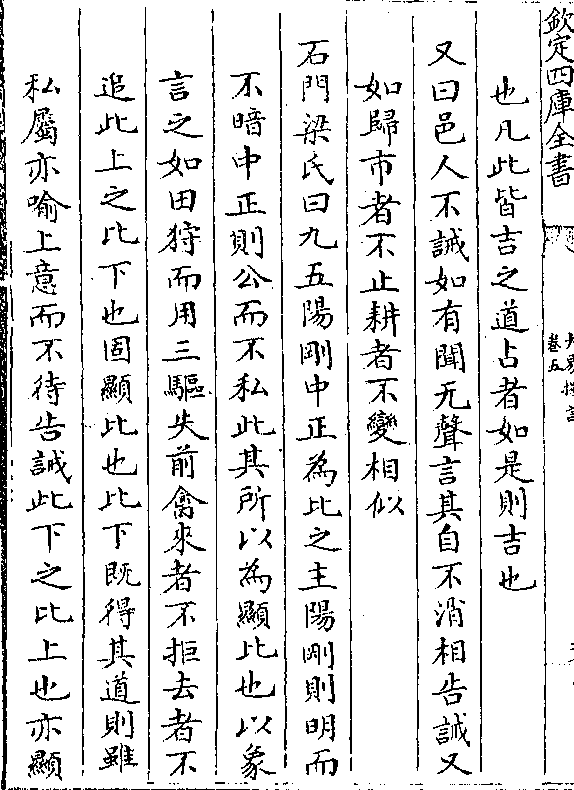 欽定四庫全書
卷五
也凡此皆吉之道占者如是則吉也
又曰邑人不誡如有聞无聲言其自不消相告誡又
如歸市者不止耕者不變相似
石門梁氏曰九五陽剛中正為比之主陽剛則明而
不暗中正則公而不私此其所以為顯比也以象
言之如田狩而用三驅失前禽來者不拒去者不
追此上之比下也固顯比也比下既得其道則雖
私屬亦喻上意而不待告誡此下之比上也亦顯